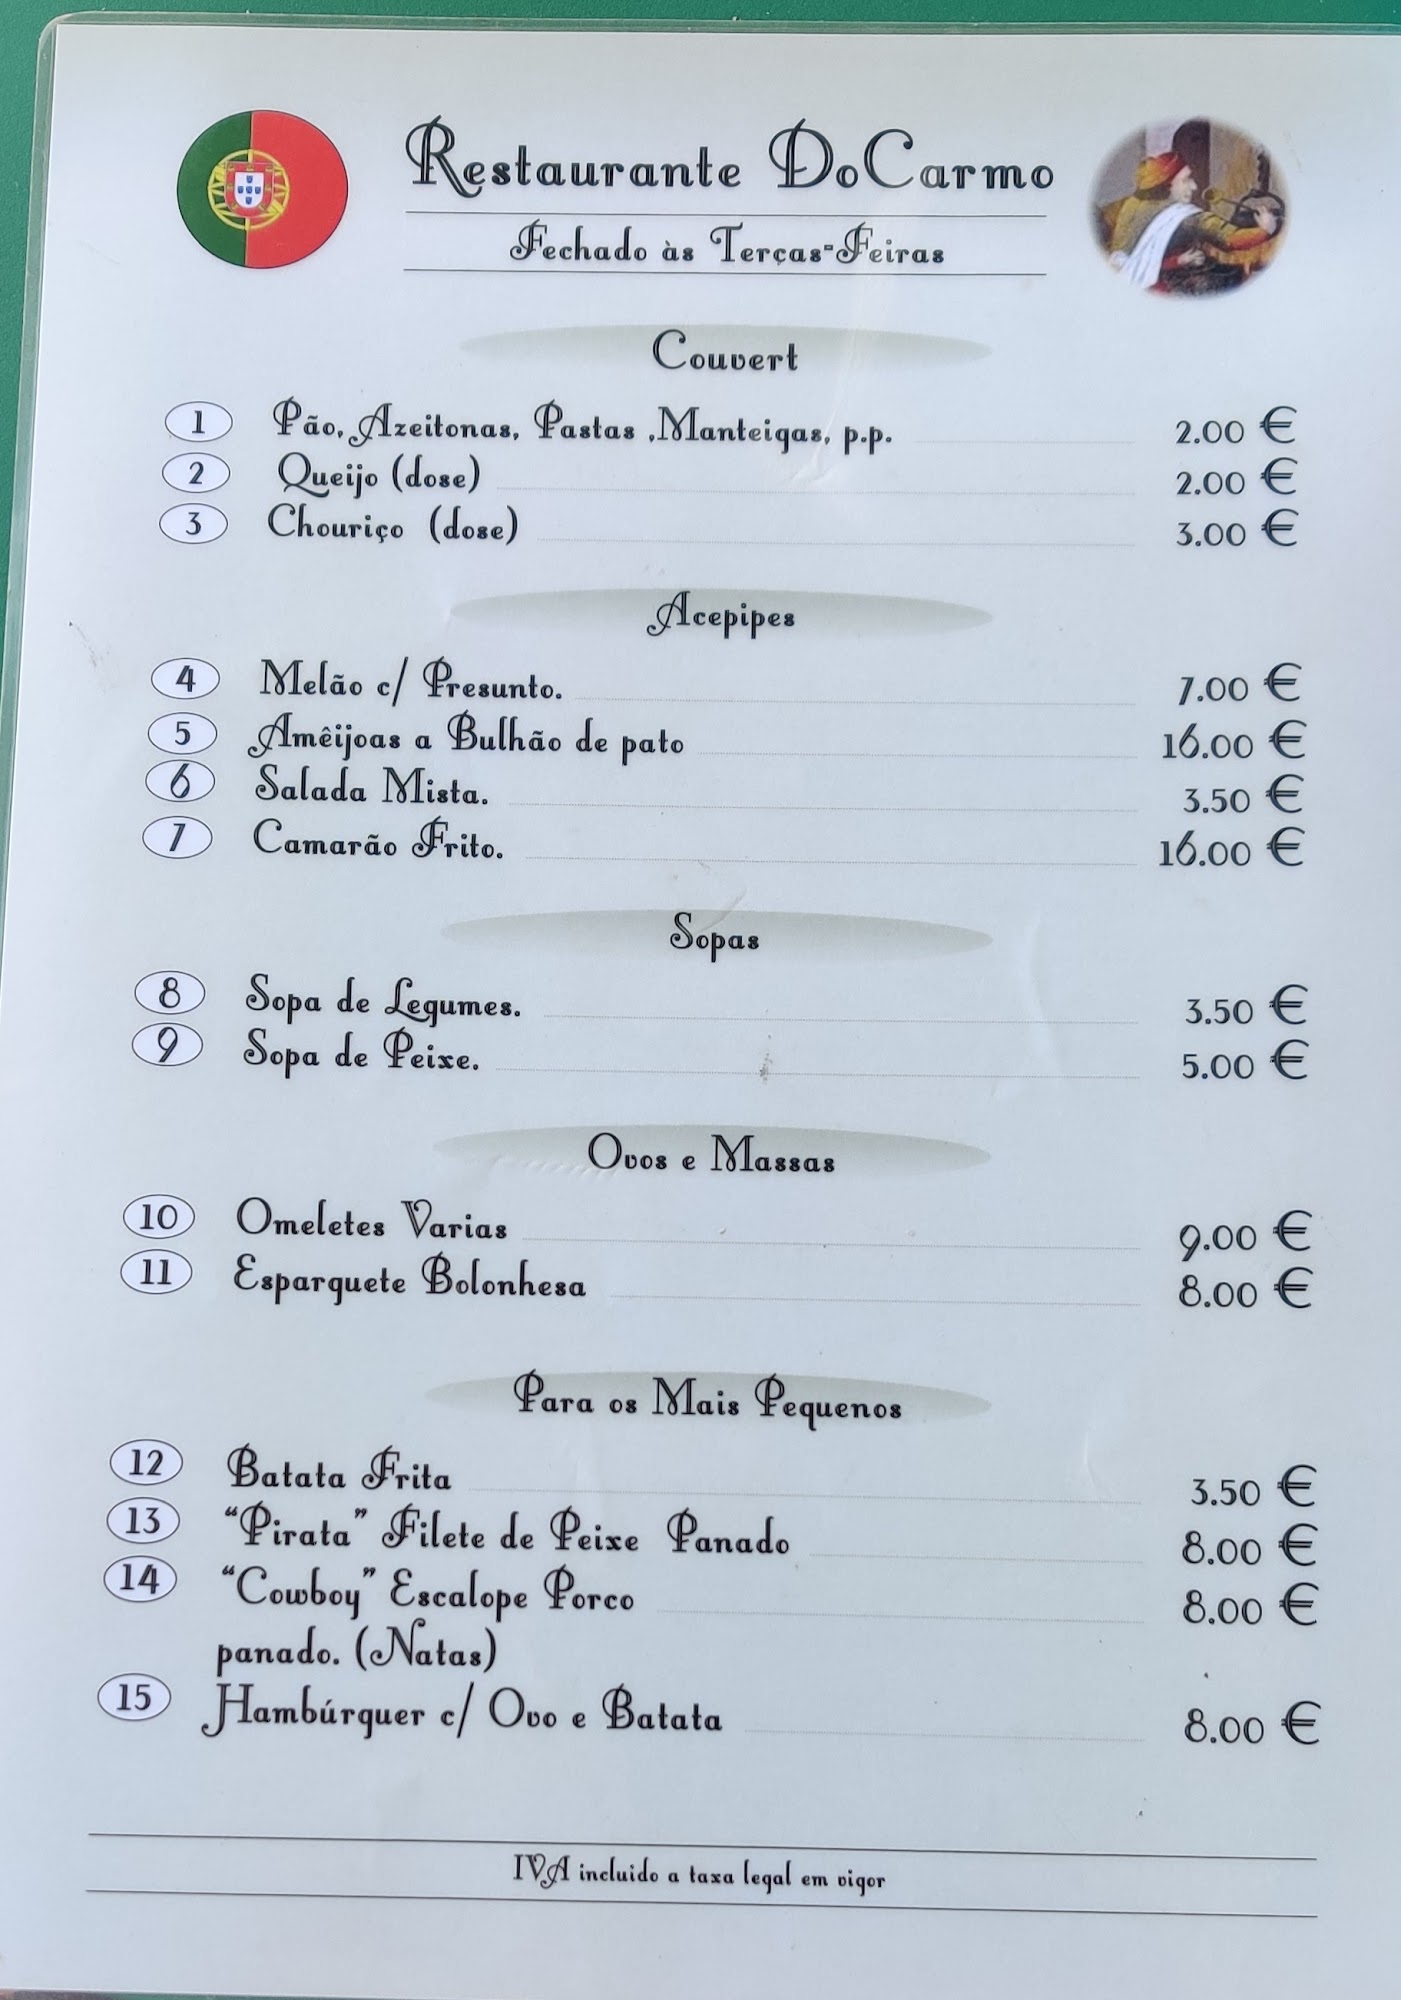 Restaurante DoCarmo
Fechado às Terças-Feiras
Couvert
1 Pão, Azeitonas, Pastas ,Manteigas, p.p. 2.00 €
2 Queijo (dose) 2.00 €
3 Chouriço (dose) 3.00 €
Acepipes
4 Melão c/ Presunto. 7.00 €
5 Amêijoas a Bulhão de pato 16.00 €
6 Salada Mista. 3.50 €
7 Camarão Frito. 16.00 €
Sopas
8 Sopa de Legumes. 3.50 €
9 Sopa de Peixe. 5.00 €
Ovos e Massas
10 Omeletes Varias 9.00 €
11 Esparguete Bolonhesa 8.00 €
Para os Mais Pequenos
12 Batata Frita 3.50 €
13 “Pirata” Filete de Peixe Panado 8.00 €
14 “Cowboy” Escalope Porco 8.00 €
panado. (Natas)
15 Hambúrguer c/ Ovo e Batata 8.00 €
IVA incluido a taxa legal em vigor